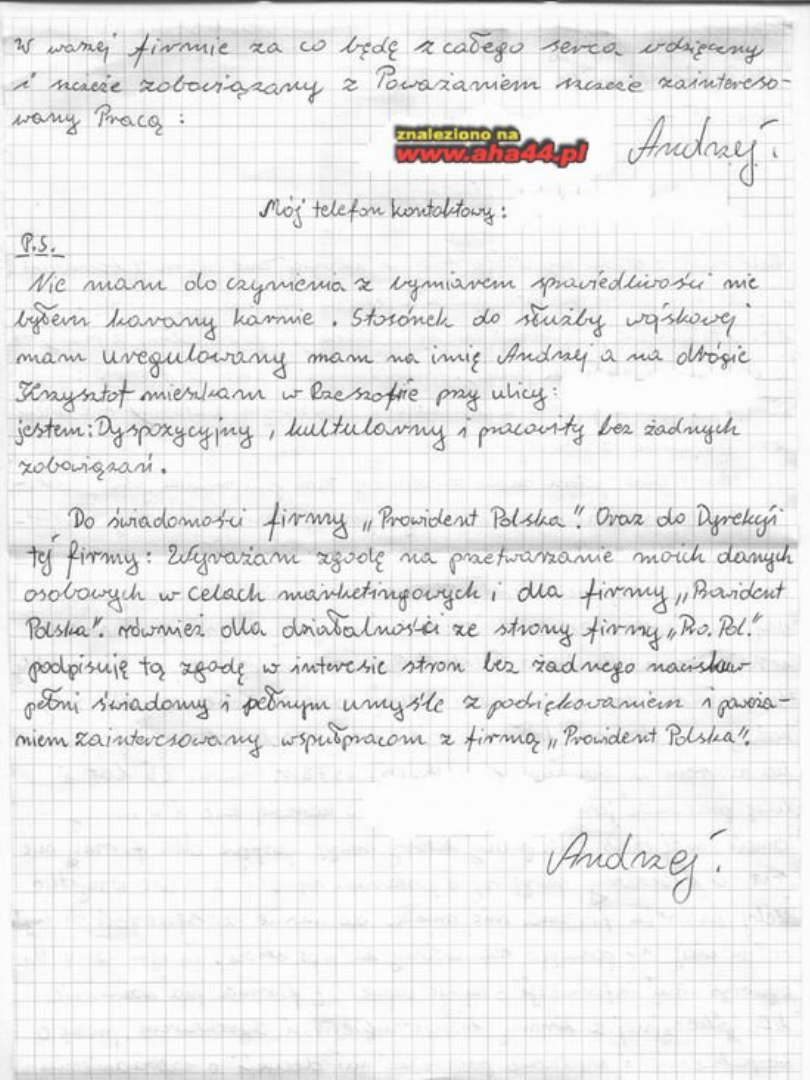 w waszej firmie za co będę z całego serca wdzięczny
i szczeże zobowiązany z Poważaniem szczeże zaintereso-
wany Pracą :
znaleziono na
www.aha44.pl
Andrzej.
Mój telefon kontaktowy:
P.S.
Nie mam do czynienia z wymiarem sprawiedliwości nie
byłem karany karnie. Stosónek do służby wojskowej
mam uregulowany mam na imię Andrzej a na drógie
Krzysztof mieszkam w Rzeszofie przy ulicy:
jestem: Dyspozycyjny, kultularny i pracowity bez żadnych
zobowiązań.
Do świadomości firmy „Prowident Polska". Oraz do Dyrekcji
tej firmy: Wyrażam zgodę na przetwarzanie moich danych
osobowych w celach marketingowych i dla firmy „Prowident
Polska". również dla działalności ze strony firmy „Pro. Pol."
podpisuję tą zgodę w interesie stron bez żadnego nacisku w
pełni świadomy i pełnym umyśle z podziękowaniem i poważa-
niem zainteresowany wspułpracom z firmą „Prowident Polska".
Andrzej.